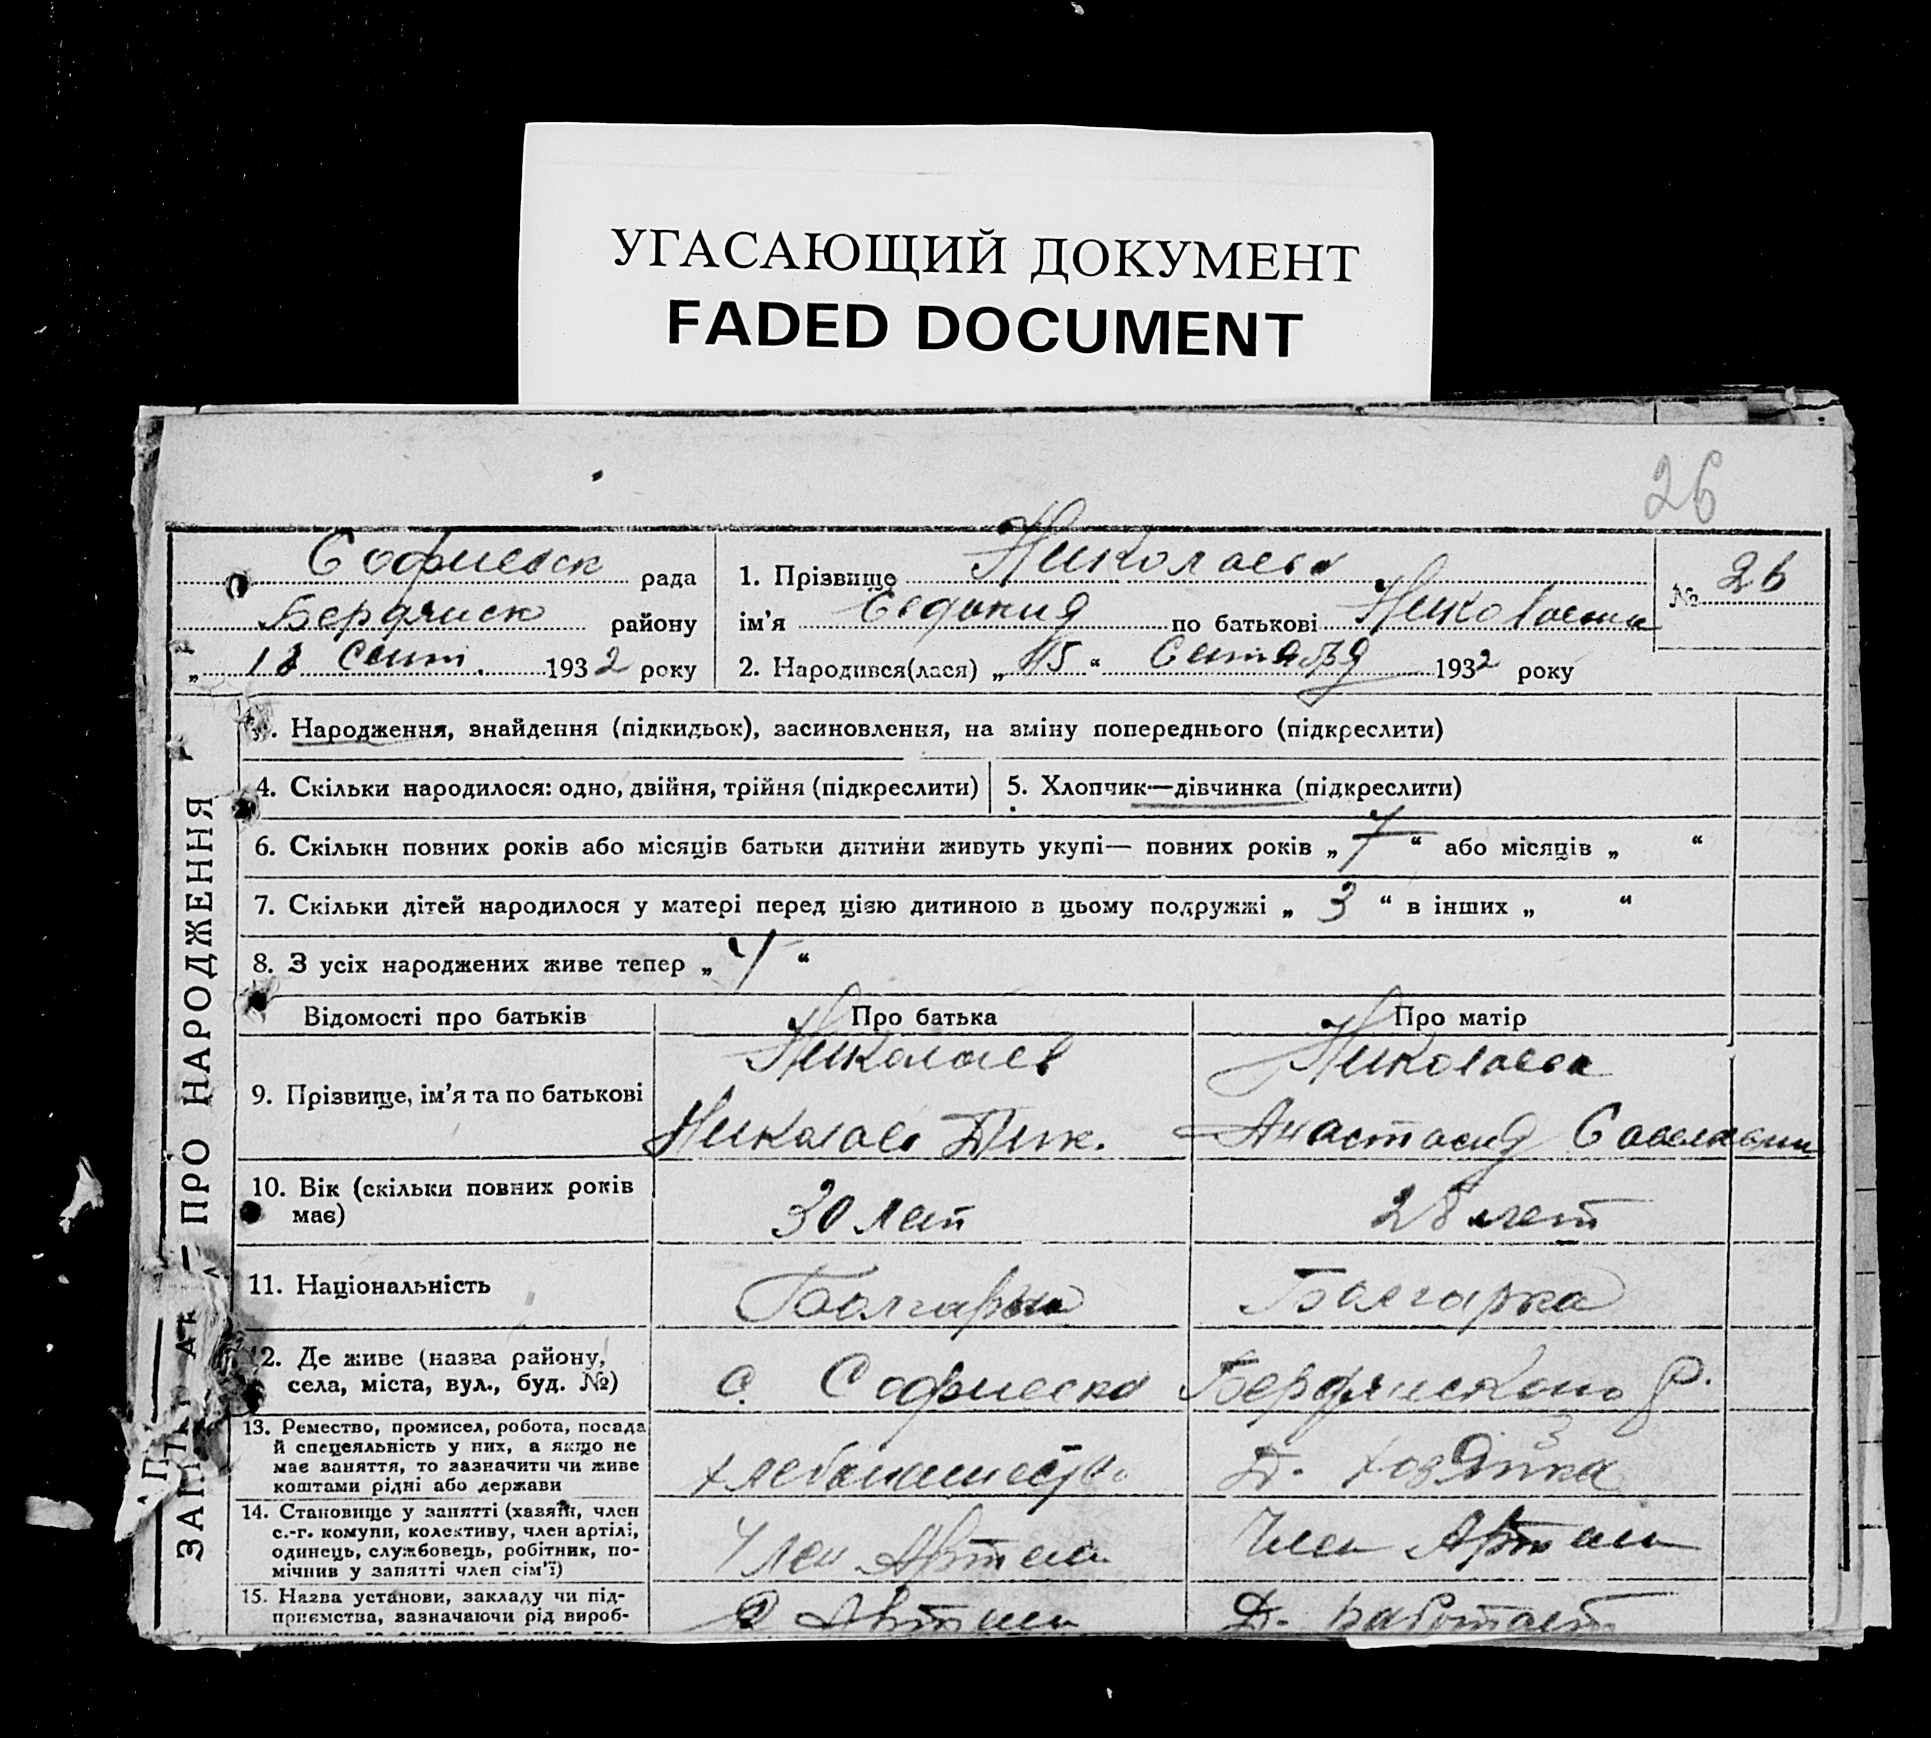 УГАСАЮЩИЙ ДОКУМЕНТ
FADED DOCUMENT
26
Софиевск рада
Бердянск району
„ 18 Сент. 1932 року
1. Прізвище Николаева
ім'я Евдокия по батькові Николаевна
2. Народився(лася) „ 15 “ Сентября 1932 року
№ 26
ПРО НАРОДЖЕННЯ
3. Народження, знайдення (підкидьок), засиновлення, на зміну попереднього (підкреслити)
4. Скільки народилося: одно, двійня, трійня (підкреслити)
5. Хлопчик—дівчинка (підкреслити)
6. Скільки повних років або місяців батьки дитини живуть укупі— повних років „ 7 “ або місяців „ “
7. Скільки дітей народилося у матері перед цією дитиною в цьому подружжі „ 3 “ в інших „ “
8. З усіх народжених живе тепер „ 4 “
Відомості про батьків Про батька Про матір
9. Прізвище, ім'я та по батькові
Николаев Николаева
Николай Дмк. Анастасия Савельевна
10. Вік (скільки повних років
має)
30 лет 28 лет
11. Національність Болгарин Болгарка
12. Де живе (назва району,
села, міста, вул., буд. №)
с. Софиевка Бердянского р.
13. Ремество, промисел, робота, посада
й спецеяльність у них, а якщо не
має заняття, то зазначити чи живе
коштами рідні або держави
хлебопашество Д. хозяйка
14. Становище у занятті (хазяїн, член
с.-г. комуни, колективу, член артілі,
одинець, службовець, робітник, по-
мічнив у занятті член сім'ї)
Член Артели Член Артели
15. Назва установи, закладу чи під-
приємства, зазначаючи рід вироб-
В Артели Д. работает